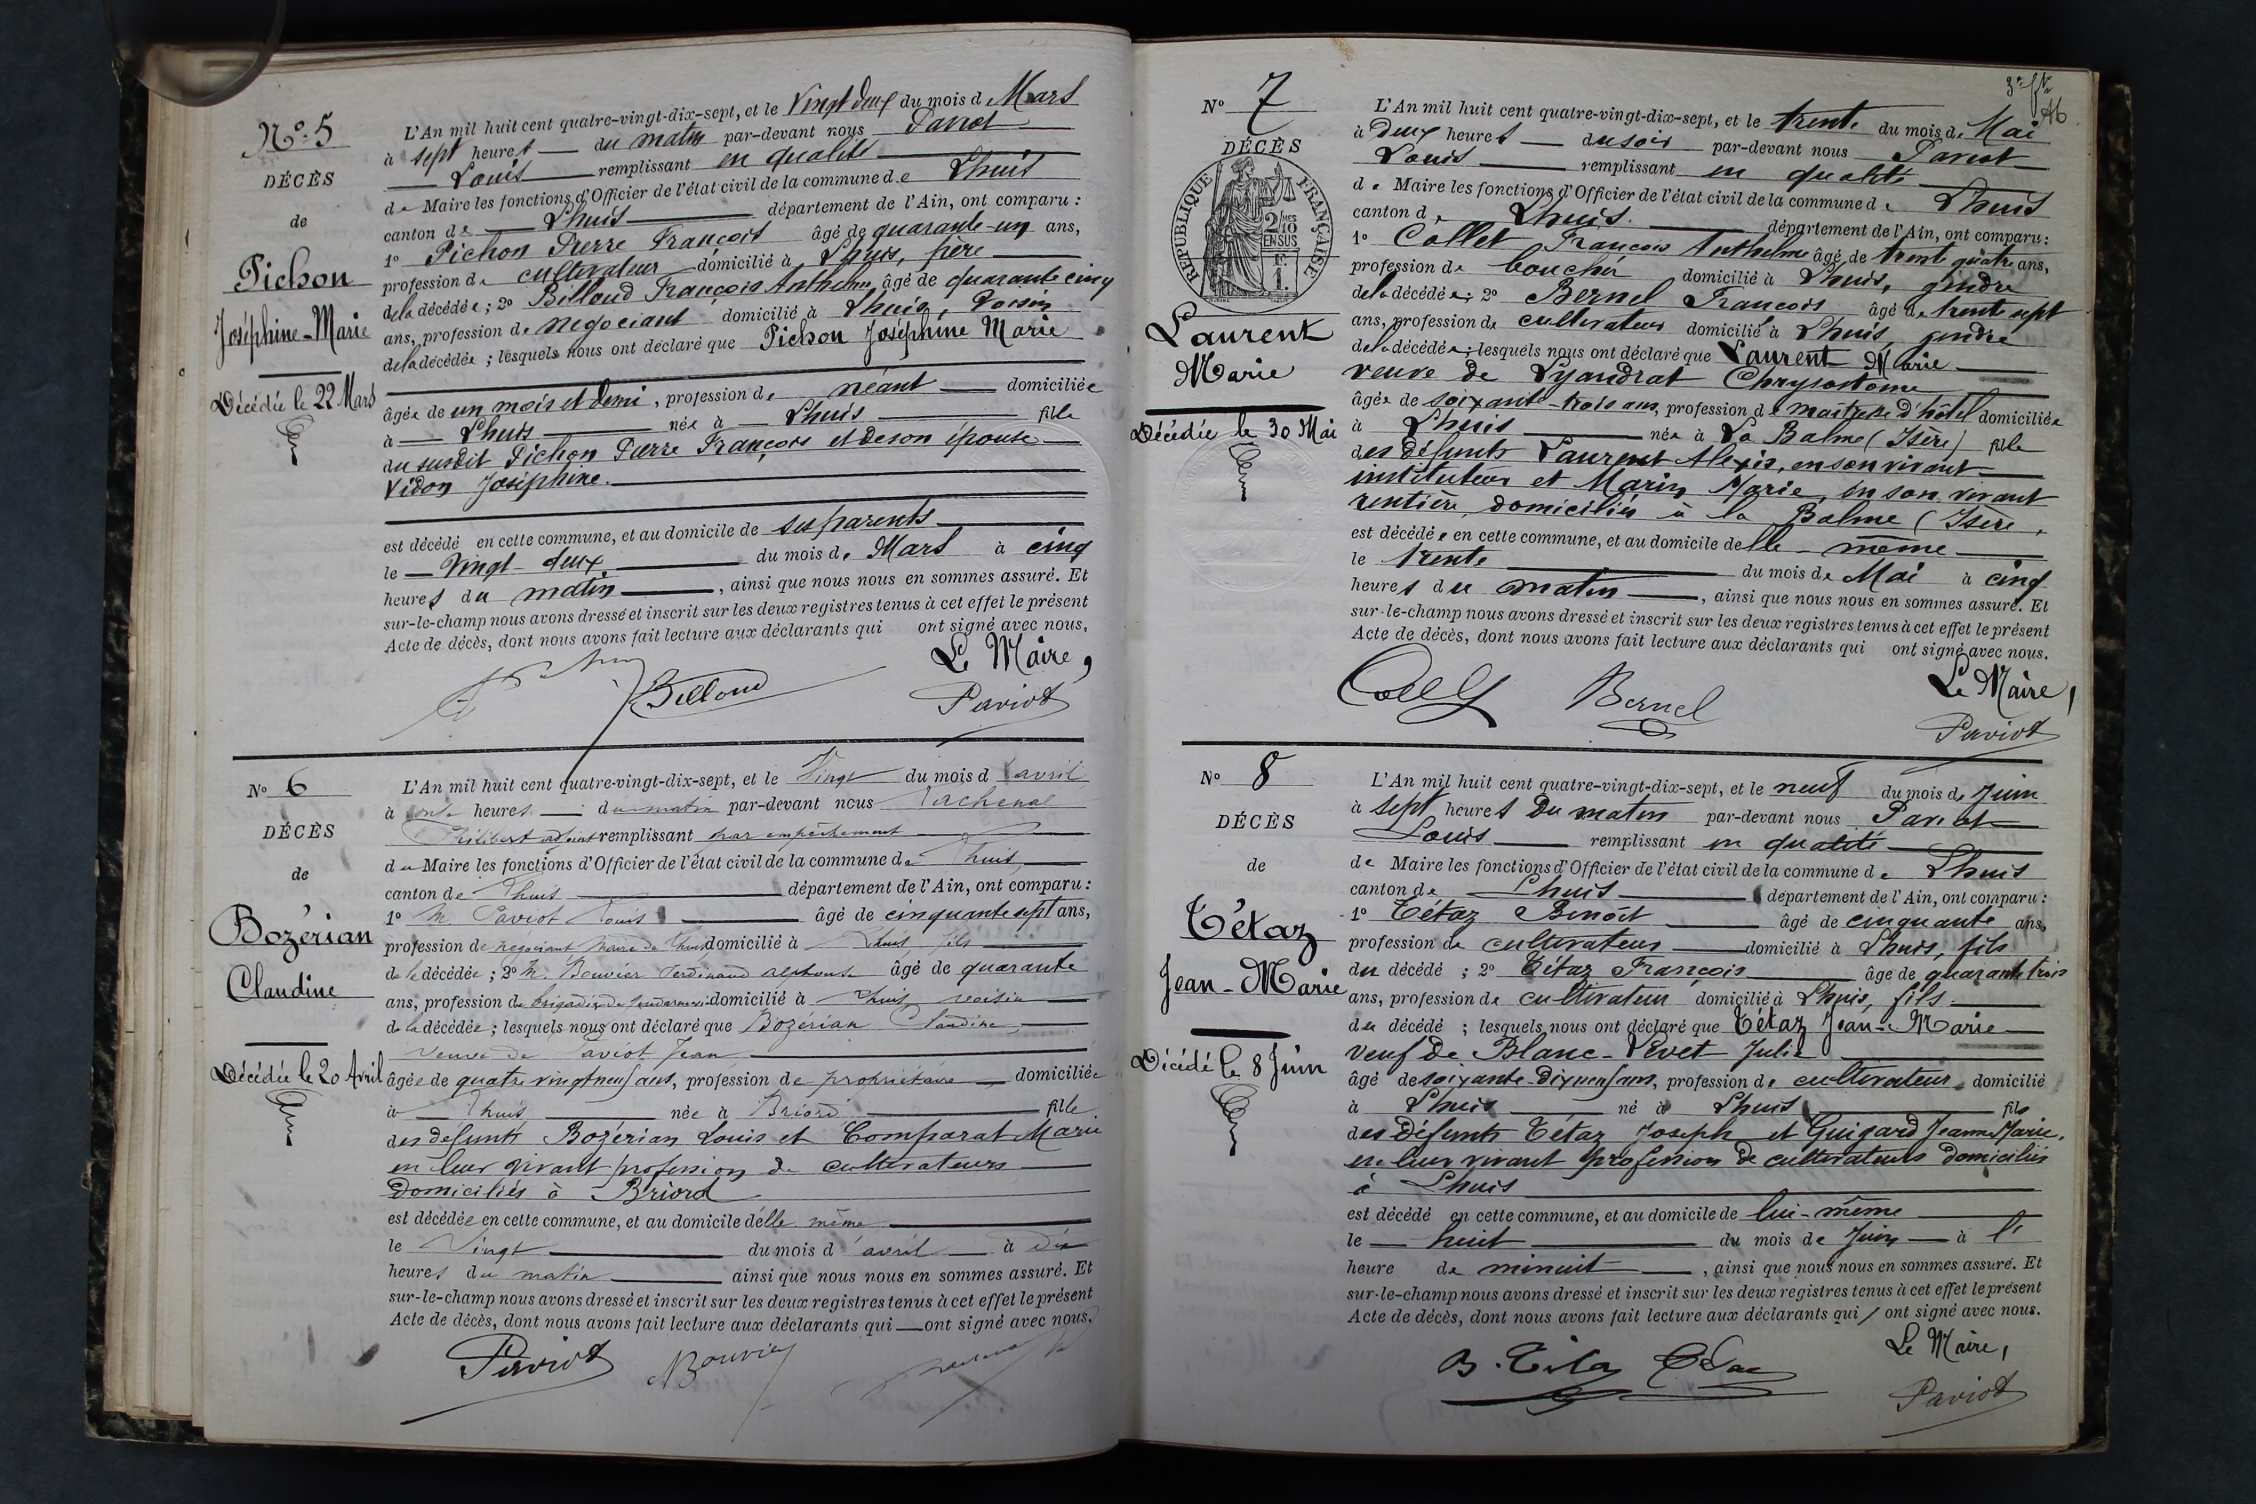 N° 5
DÉCÈS
de
Pichon
Joséphine-Marie
Décédée le 22 Mars
L'An mil huit cent quatre-vingt-dix-sept, et le vingt deux du mois d Mars
à sept heures du matin par-devant nous Paviot
Louis remplissant en qualité
de Maire les fonctions d'Officier de l'état civil de la commune de Lhuis
canton de Lhuis département de l'Ain, ont comparu :
1° Pichon Pierre François âgé de quarante-un ans,
profession de cultivateur domicilié à Lhuis, père
de la décédée ; 2° Billoud François Anthelme âgé de quarante cinq
ans, profession de négociant domicilié à Lhuis, voisin
de la décédée ; lesquels nous ont déclaré que Pichon Joséphine Marie
âgée de un mois et demi, profession de néant domiciliée
à Lhuis née à Lhuis fille
du susdit Pichon Pierre François et de son épouse
Vidon Joséphine.
est décédé en cette commune, et au domicile de ses parents
le vingt-deux du mois de Mars à cinq
heures du matin, ainsi que nous nous en sommes assuré. Et
sur-le-champ nous avons dressé et inscrit sur les deux registres tenus à cet effet le présent
Acte de décès, dont nous avons fait lecture aux déclarants qui ont signé avec nous.
Le Maire,
Billoud
Paviot
N° 6
DÉCÈS
de
Bozérian
Claudine
Décédée le 20 Avril
L'An mil huit cent quatre-vingt-dix-sept, et le Vingt du mois d'avril
à onze heures du matin par-devant nous
Philibert adjoint remplissant par empêchement
du Maire les fonctions d'Officier de l'état civil de la commune de Lhuis
canton de Lhuis département de l'Ain, ont comparu :
1° M. Paviot Louis âgé de cinquante sept ans,
profession de négociant Maire de Lhuis domicilié à Lhuis fils
de la décédée ; 2° M. Bouvier Ferdinand Alphonse âgé de quarante
ans, profession de brigadier de Gendarmerie domicilié à Lhuis voisin
de la décédée ; lesquels nous ont déclaré que Bozérian Claudine
veuve de Paviot Jean
âgée de quatre vingt neuf ans, profession de propriétaire domiciliée
à Lhuis née à Briord fille
des défunts Bozérian Louis et Comparat Marie
en leur vivant profession de cultivateurs
domiciliés à Briord
est décédée en cette commune, et au domicile d'elle même
le Vingt du mois d'avril à dix
heures du matin ainsi que nous nous en sommes assuré. Et
sur-le-champ nous avons dressé et inscrit sur les deux registres tenus à cet effet le présent
Acte de décès, dont nous avons fait lecture aux déclarants qui ont signé avec nous.
Paviot Bouvier
N° 7
DÉCÈS
RÉPUBLIQUE FRANÇAISE
2/10 MES
EN SUS
F.
1.
Laurent
Marie
Décédée le 30 Mai
L'An mil huit cent quatre-vingt-dix-sept, et le trente du mois de Mai
à deux heures du soir par-devant nous Paviot
Louis remplissant en qualité
de Maire les fonctions d'Officier de l'état civil de la commune de Lhuis
canton de Lhuis. département de l'Ain, ont comparu :
1° Collet François Anthelme âgé de trente quatre ans,
profession de boucher domicilié à Lhuis, gendre
de la décédée ; 2° Bernel François âgé de trente sept
ans, profession de cultivateur domicilié à Lhuis, gendre
de la décédée ; lesquels nous ont déclaré que Laurent Marie
veuve de Lyaudrat Chrysostôme
âgée de soixante-trois ans, profession de maîtresse d'hôtel domiciliée
à Lhuis née à La Balme (Isère) fille
des défunts Laurent Alexis, en son vivant
instituteur et Marin Marie, en son vivant
rentière, domiciliés à la Balme (Isère,
est décédée en cette commune, et au domicile d'elle-même
le trente du mois de Mai à cinq
heures du matin, ainsi que nous nous en sommes assuré. Et
sur-le-champ nous avons dressé et inscrit sur les deux registres tenus à cet effet le présent
Acte de décès, dont nous avons fait lecture aux déclarants qui ont signé avec nous.
Le Maire,
Bernel
Paviot
N° 8
DÉCÈS
de
Tétaz
Jean-Marie
Décédé le 8 Juin
L'An mil huit cent quatre-vingt-dix-sept, et le neuf du mois de Juin
à sept heures du matin par-devant nous Paviot
Louis remplissant en qualité
de Maire les fonctions d'Officier de l'état civil de la commune de Lhuis
canton de Lhuis département de l'Ain, ont comparu :
1° Tétaz Benoît âgé de cinquante ans,
profession de cultivateur domicilié à Lhuis, fils
du décédé ; 2° Tétaz François âgé de quarante trois
ans, profession de cultivateur domicilié à Lhuis, fils
du décédé ; lesquels nous ont déclaré que Tétaz Jean-Marie
veuf de Blanc-Vevet Julie
âgé de soixante-dix neuf ans, profession de cultivateur domicilié
à Lhuis né à Lhuis fils
des défunts Tétaz Joseph et Guigard Jeanne Marie,
en leur vivant profession de cultivateurs domiciliés
à Lhuis
est décédé en cette commune, et au domicile de lui-même
le huit du mois de Juin à l'
heure de minuit, ainsi que nous nous en sommes assuré. Et
sur-le-champ nous avons dressé et inscrit sur les deux registres tenus à cet effet le présent
Acte de décès, dont nous avons fait lecture aux déclarants qui ont signé avec nous.
Le Maire,
Paviot